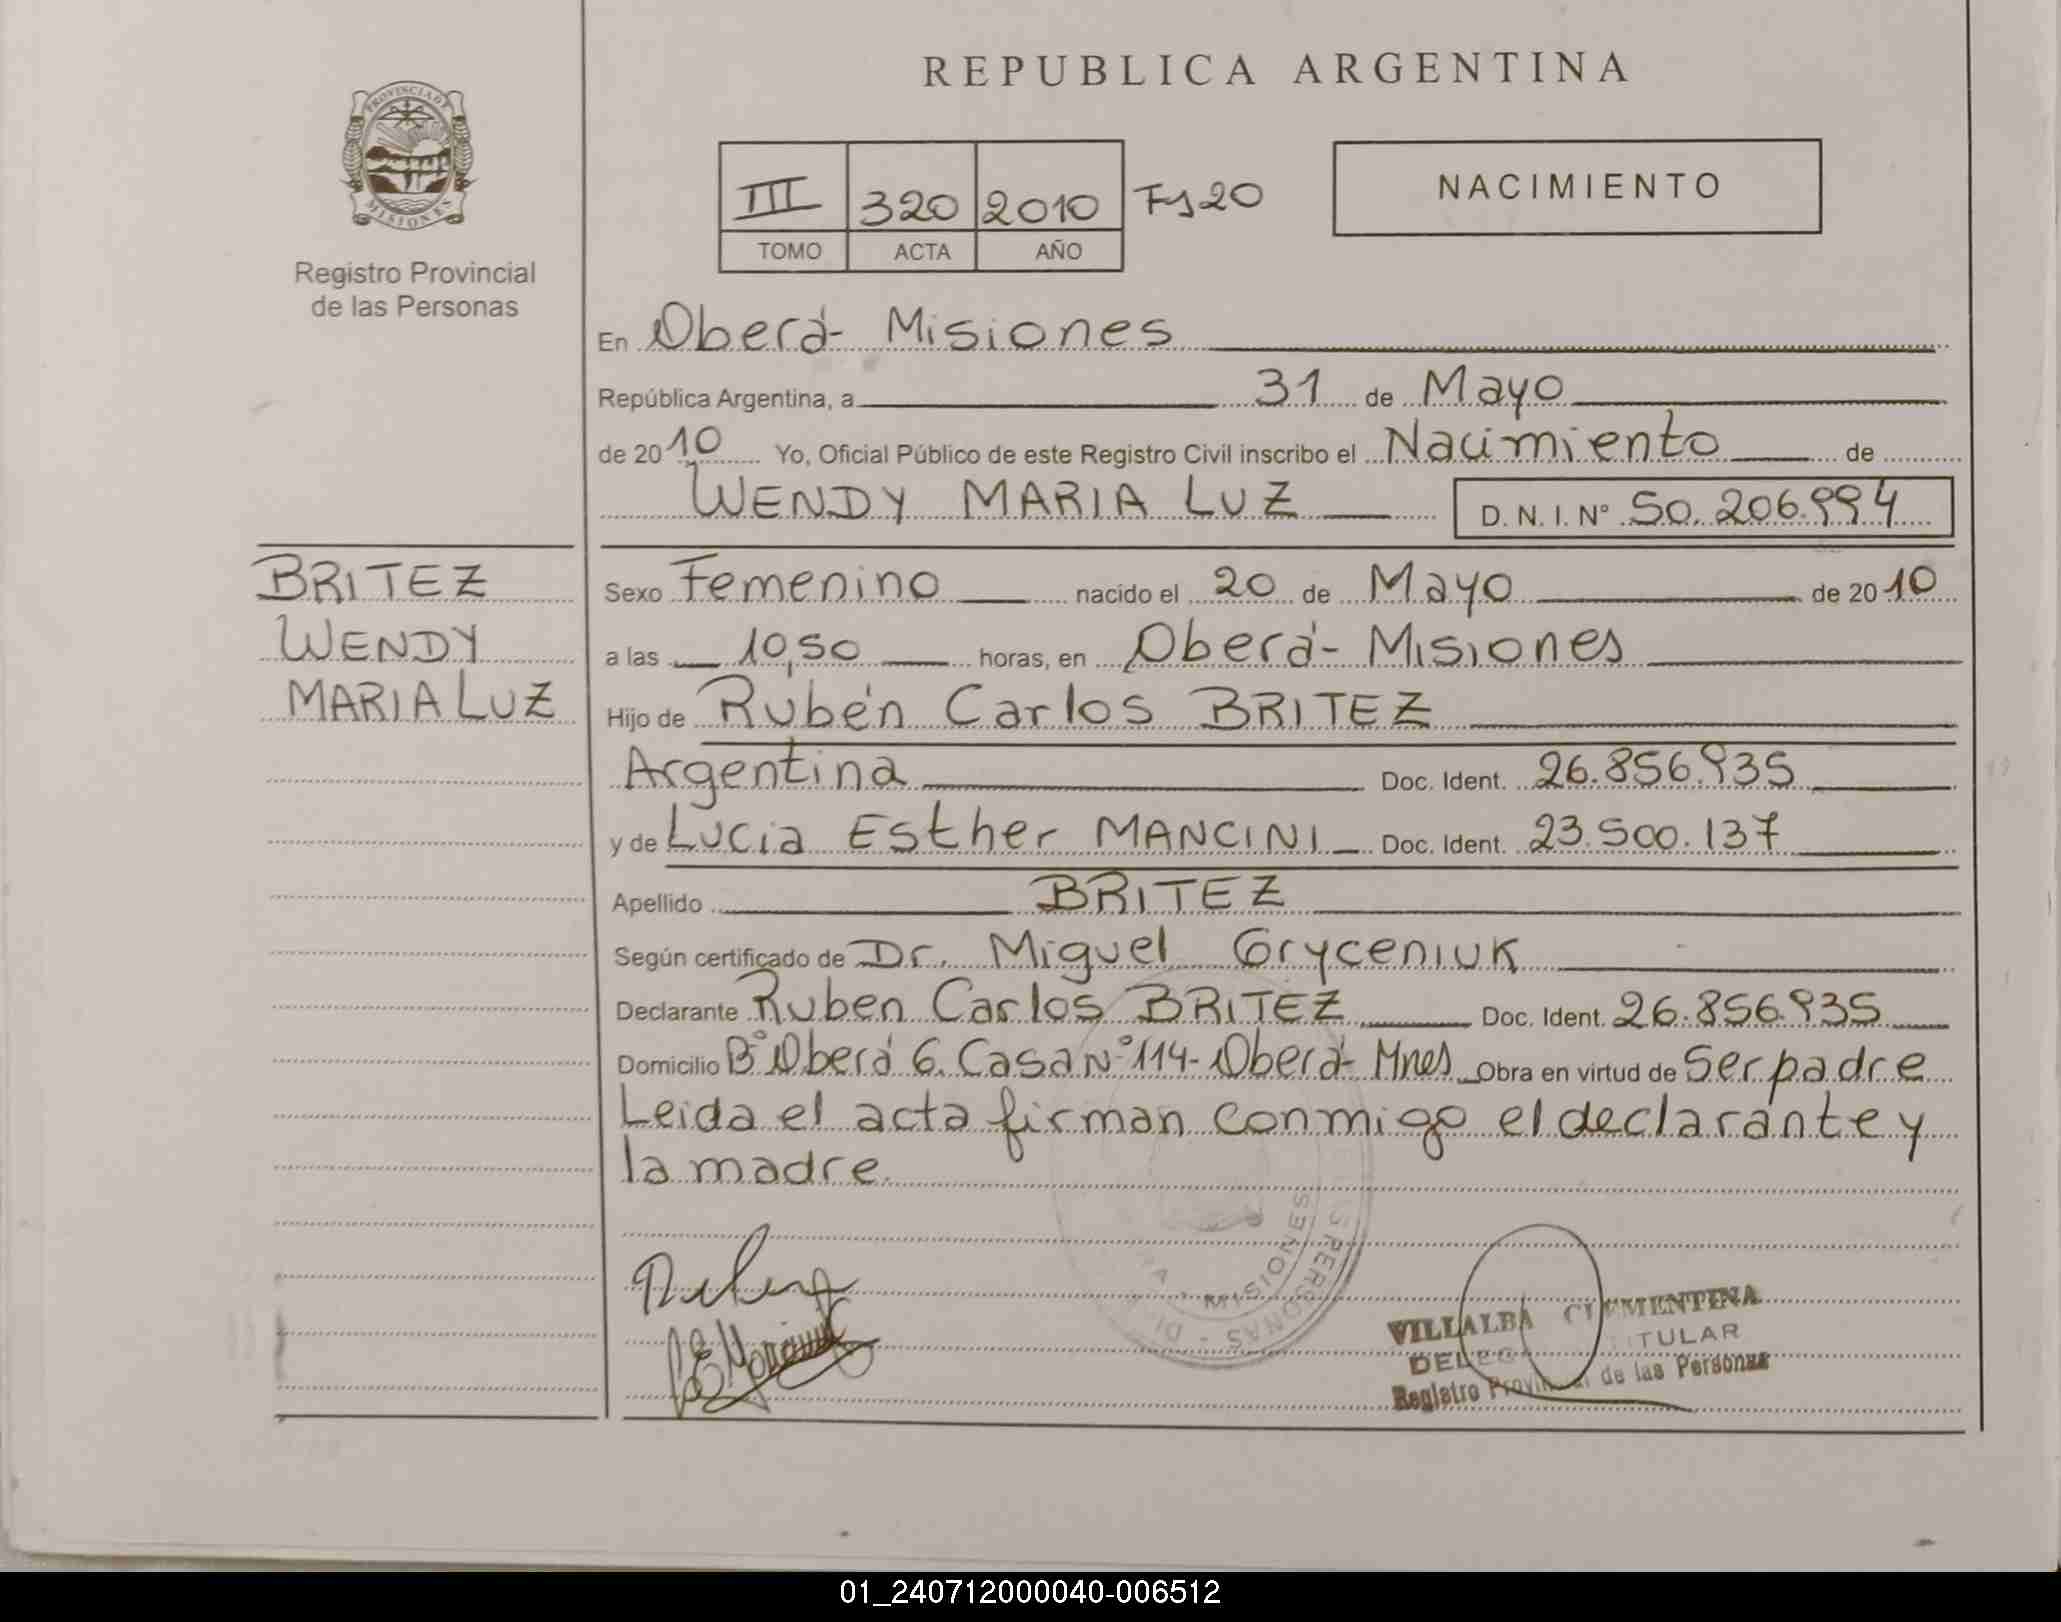 REPUBLICA ARGENTINA
PROVINCIA DE MISIONES
Registro Provincial
de las Personas
III 320 2010 Fs 20
TOMO ACTA AÑO
NACIMIENTO
En Oberá- Misiones
República Argentina, a 31 de Mayo
de 2010 Yo, Oficial Público de este Registro Civil inscribo el Nacimiento de
WENDY MARIA LUZ D. N. I. Nº 50.206.994
BRITEZ
WENDY
MARIA LUZ
Sexo Femenino nacido el 20 de Mayo de 2010
a las 10,50 horas, en Oberá- Misiones
Hijo de Rubén Carlos BRITEZ
Argentina Doc. Ident. 26.856.935
y de Lucia Esther MANCINI Doc. Ident. 23.500.137
Apellido BRITEZ
Según certificado de Dr. Miguel Gryceniuk
Declarante Ruben Carlos BRITEZ Doc. Ident. 26.856.935
Domicilio Bº Oberá 6. Casa Nº 114- Oberá- Mnes Obra en virtud de Ser padre
Leida el acta firman conmigo el declarante y
la madre.
MISIONES
PERSONAS
VILLALBA CLEMENTINA
TITULAR
Registro Provincial de las Personas
01_240712000040-006512